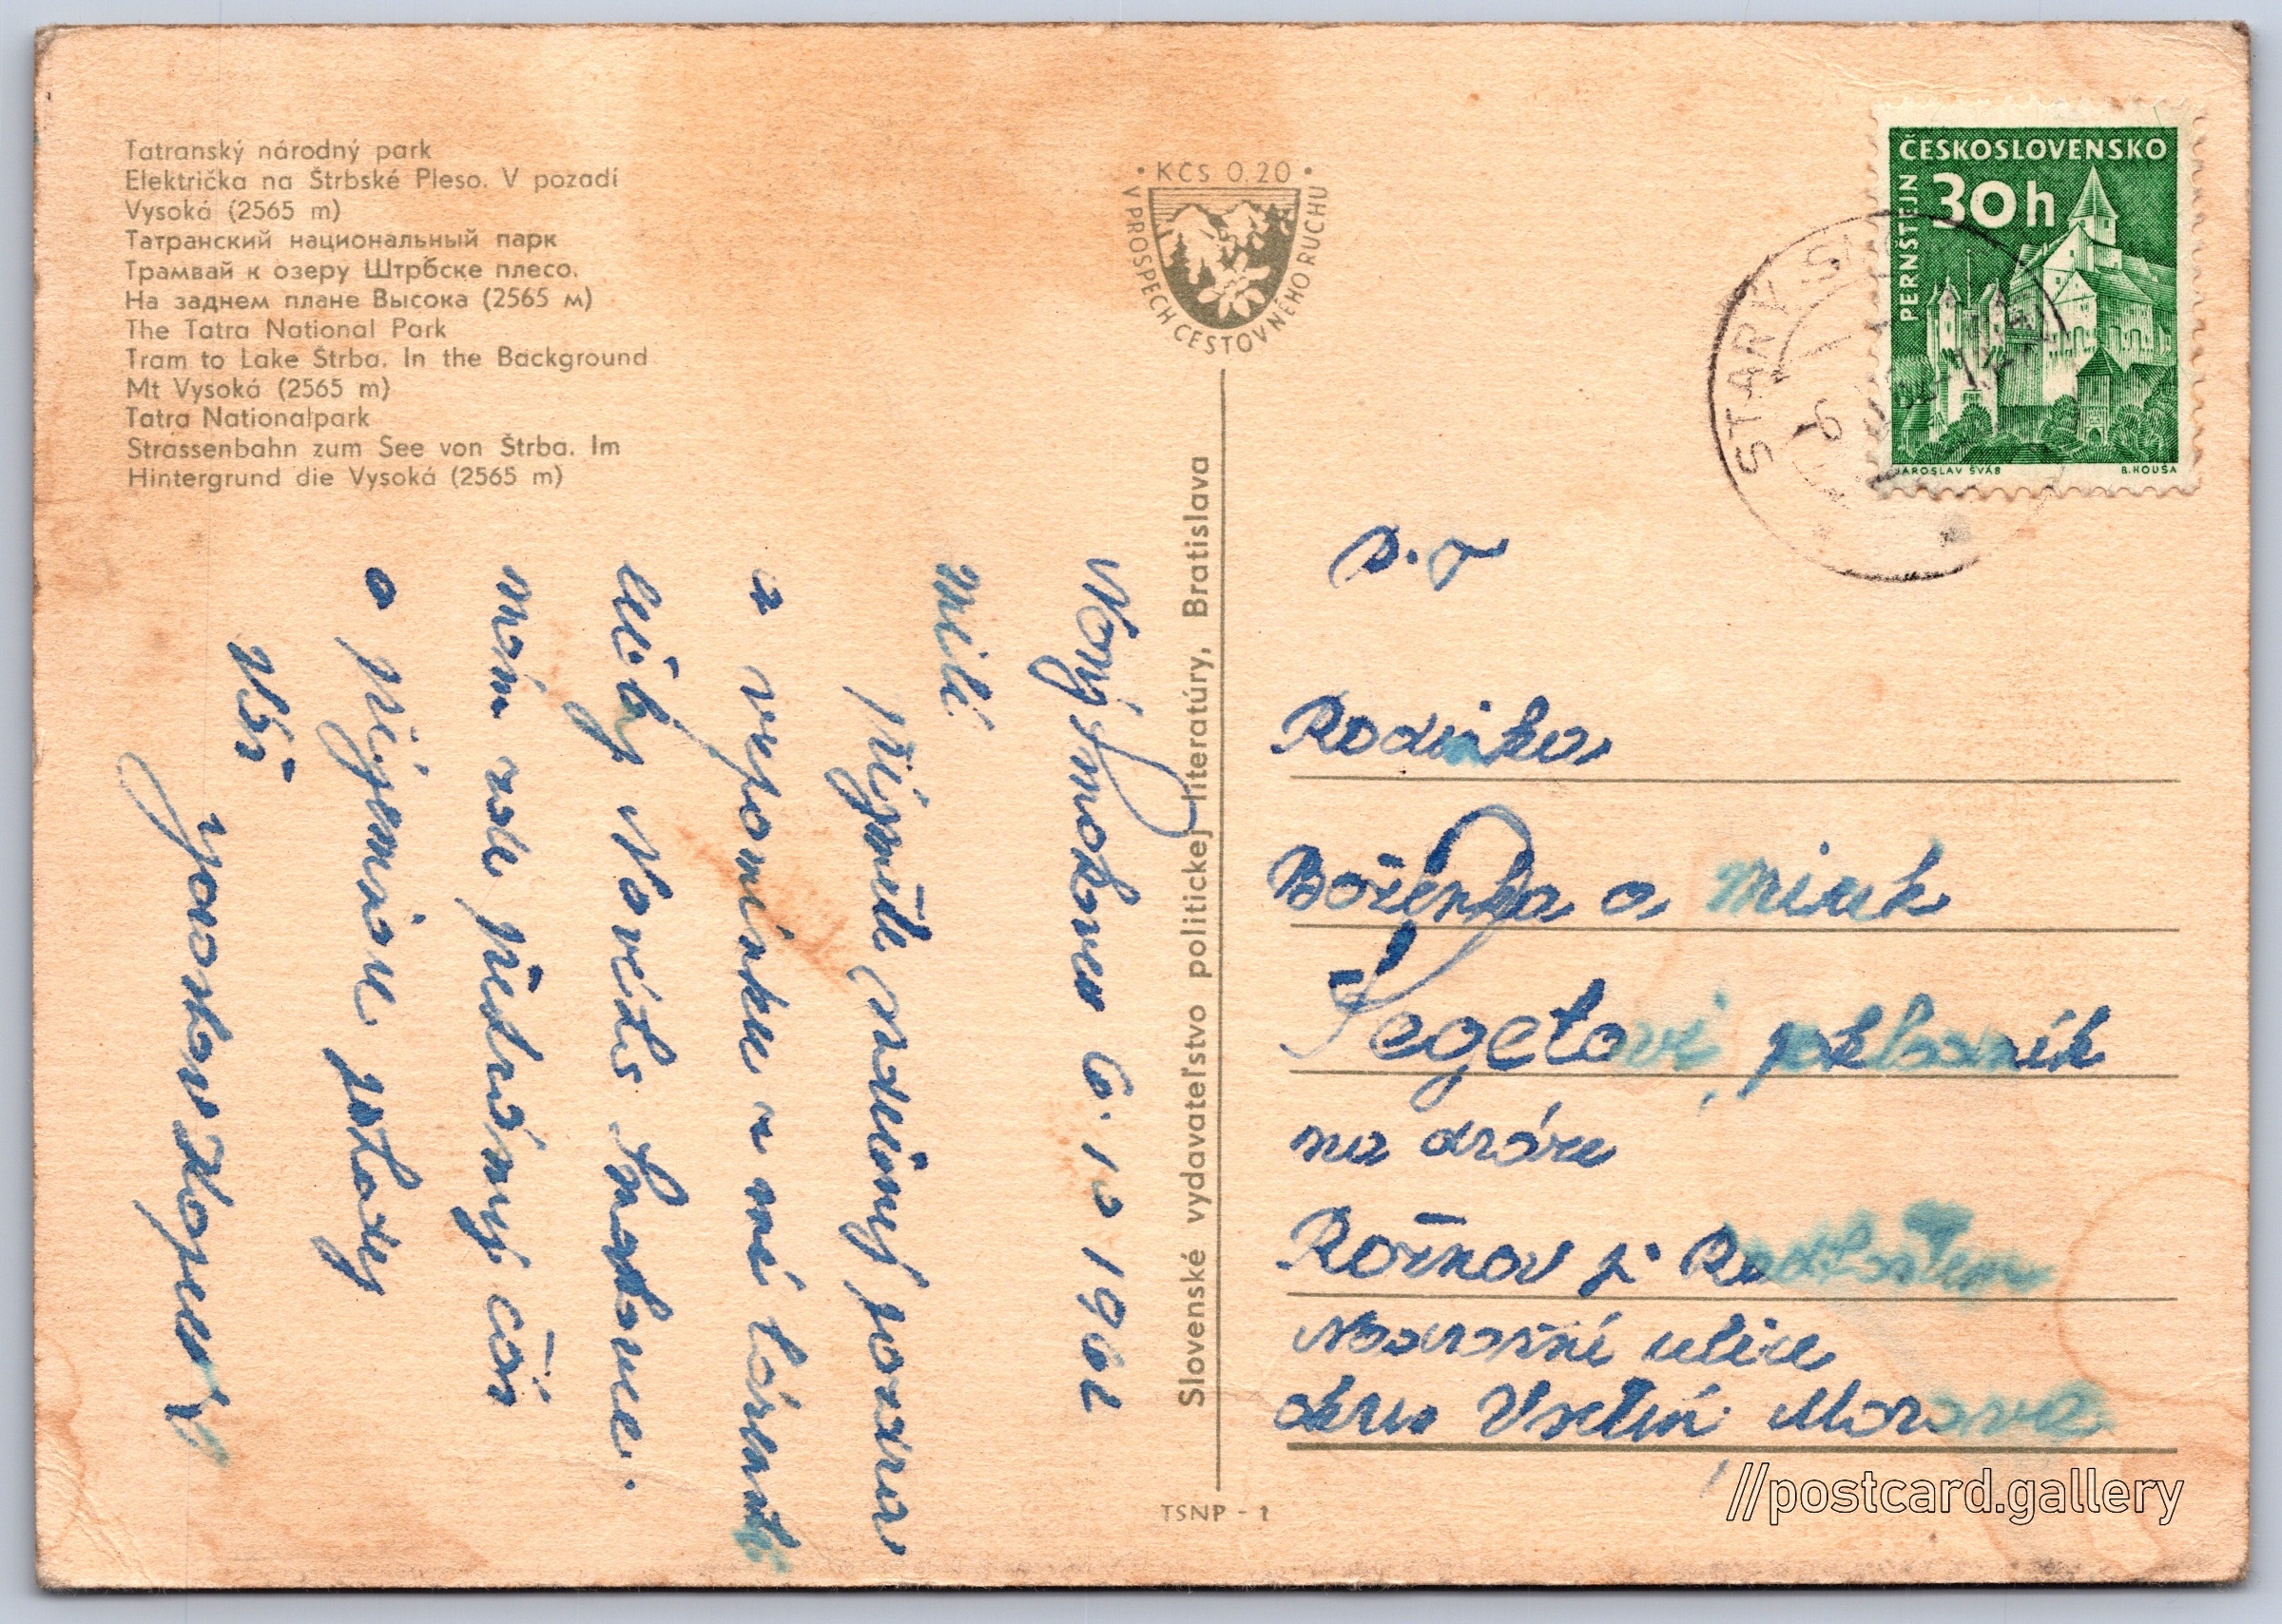 Tatranský národný park
Električka na Štrbské Pleso. V pozadí
Vysoká (2565 m)
Татранский национальный парк
Трамвай к озеру Штрбске плесо.
На заднем плане Высока (2565 м)
The Tatra National Park
Tram to Lake Štrba. In the Background
Mt Vysoká (2565 m)
Tatra Nationalpark
Strassenbahn zum See von Štrba. Im
Hintergrund die Vysoká (2565 m)
• KČS 0,20 •
V PROSPECH CESTOVNÉHO RUCHU
ČESKOSLOVENSKO
30h
PERNŠTEJN
JAROSLAV ŠVÁB
B. HOUŠA
STARÝ
Slovenské vydavateľstvo politickej literatúry, Bratislava
TSNP - 1
Nový Smokovec 6.10 1962
milí
přijměte srdečný pozdrav
a vzpomínku z mé
léčby Novoveský Smokovec.
mám zde překrásný čas
a příjemné
Váš
p. r
Rodinka
Boženka a Mirek
Segetovi, pokladník
na dráze
Rožnov p. Radhoštem
Nádražní ulice
okres Vsetín Morava
//postcard.gallery